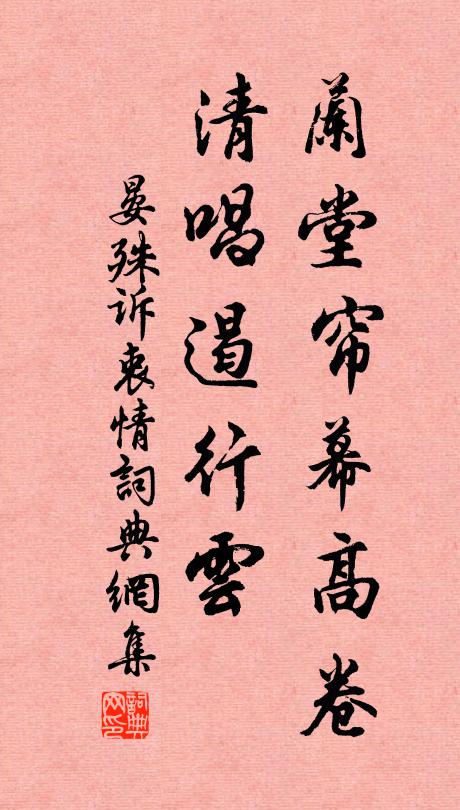 蘭堂帘幕高卷
清唱遏行雲
晏殊訴衷情詞典網集
詞典网印